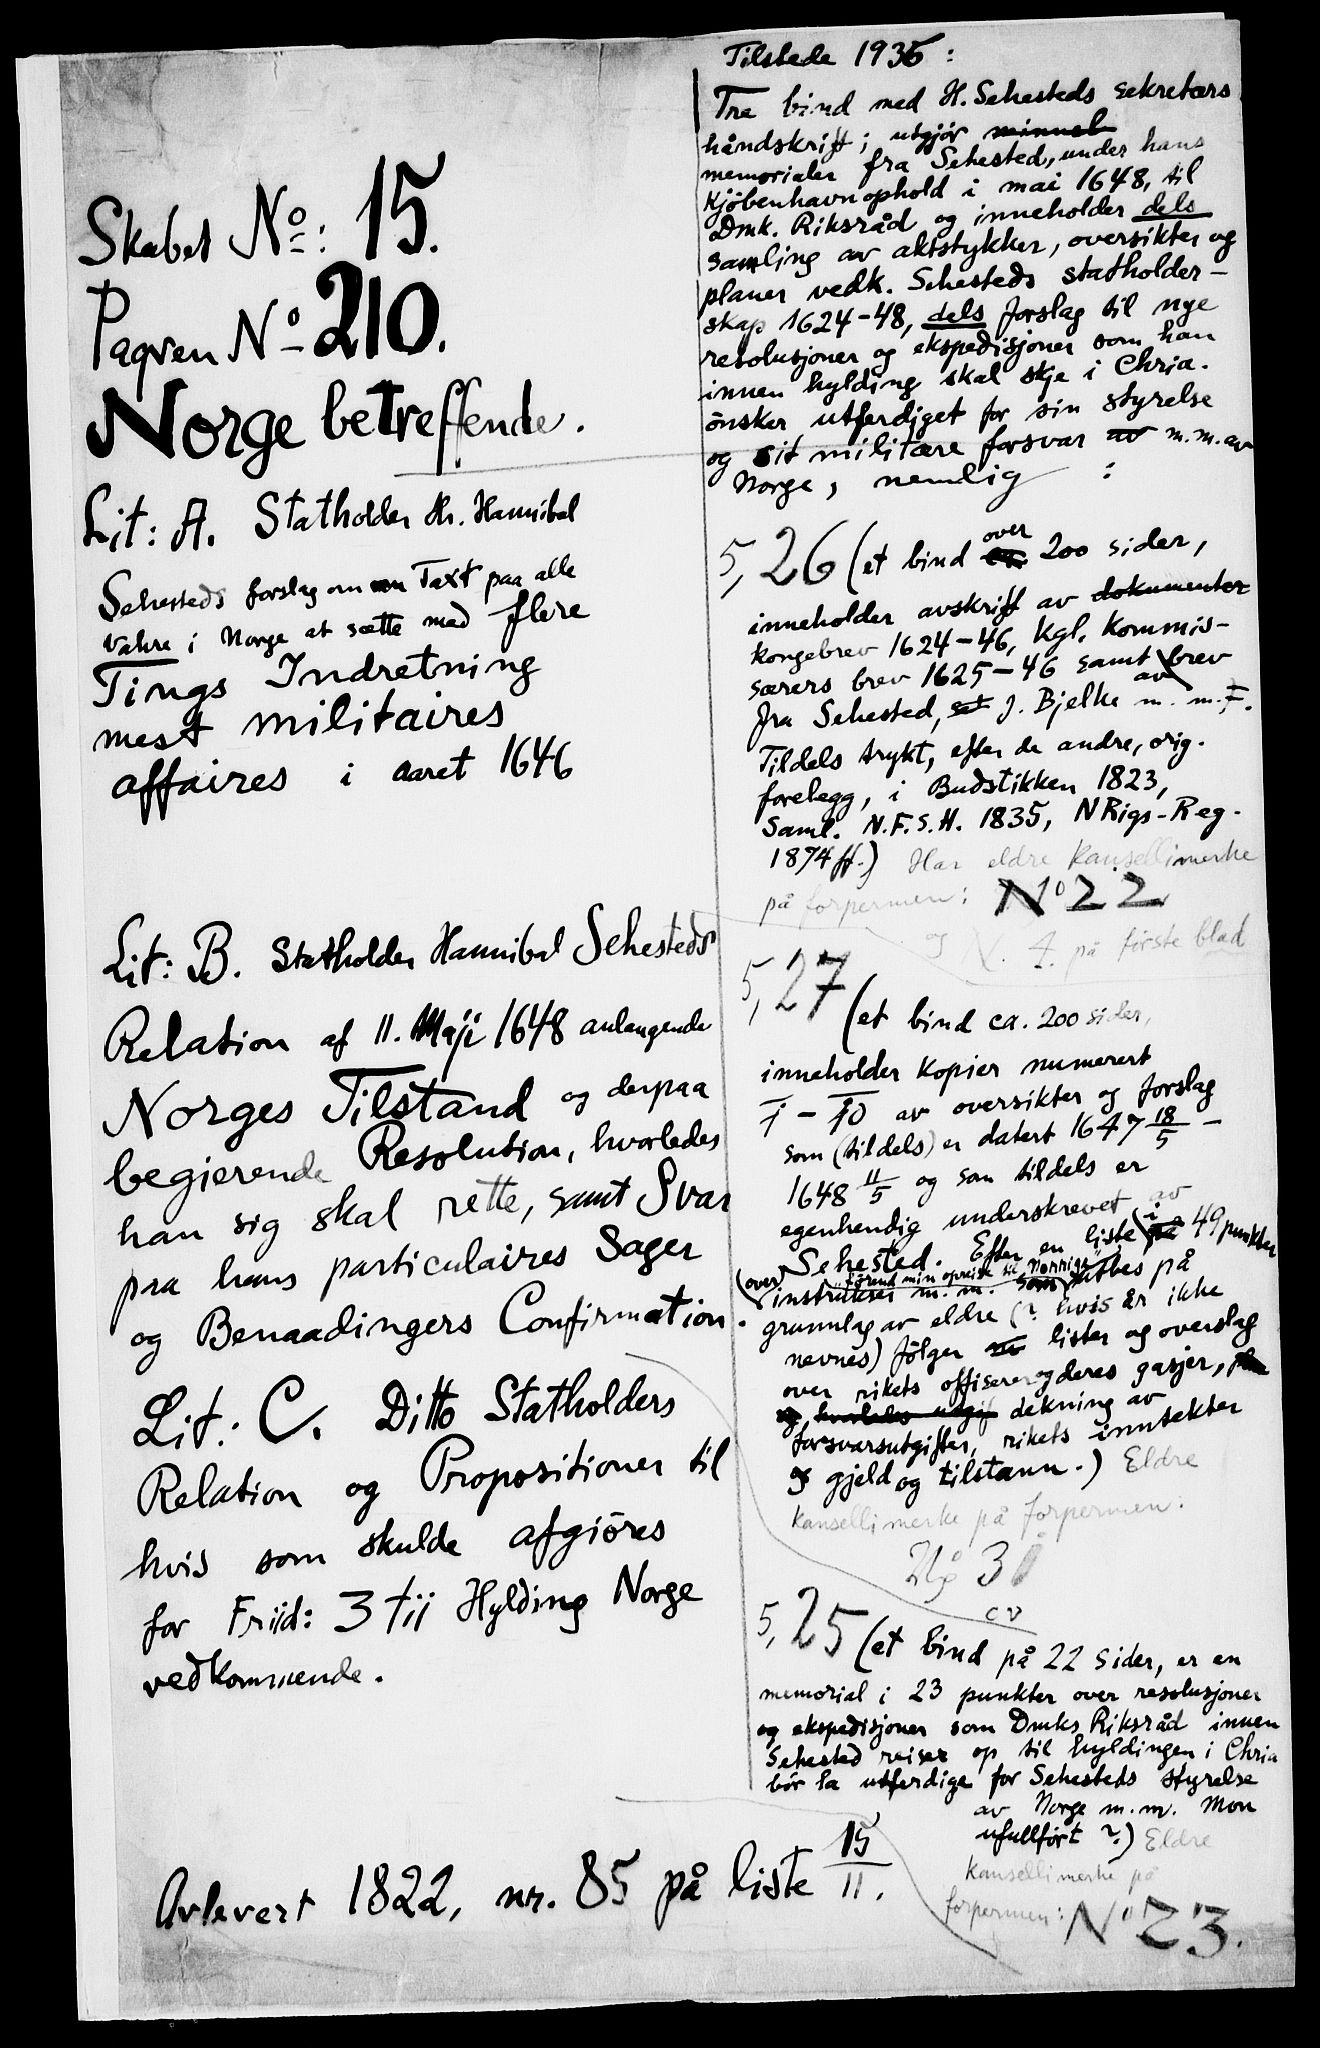 Skabet No: 15.
Paqven No 210.
Norge betreffende.
Lit: A. Statholder Hr. Hannibal
Sehesteds forslag om en Taxt paa alle
vahre i Norge at sætte med flere
Tings Indretning
mest militaires
affaires i aaret 1646
Lit: B. Statholder Hannibal Sehesteds
Relation af 11. Maji 1648 anlangende
Norges Tilstand og derpaa
begierende Resolution, hvorledes
han sig skal rette, samt Svar
paa hans particulaires Sager
og Benaadingers Confirmation.
Lit: C. Ditto Statholders
Relation og Propositioner til
hvis som skulde afgiöres
for Friid: 3 tii Hylding Norge
vedkommende.
Avlevert 1822, nr. 85 på liste 15/11.
Tilstede 1936:
Tre bind med H. Sehesteds sekretærs
håndskrift; utgjør
memorialer fra Sehested, under hans
Kjøbenhavnophold i mai 1648, til
Dmk. Riksråd og inneholder dels
samling av aktstykker, oversikter og
planer vedk. Sehesteds statholder-
skap 1624-48, dels forslag til nye
resolusjoner og ekspedisjoner som han
innen hylding skal skje i Chria.
ønsker utferdiget for sin styrelse
og sit militære forsvar av m.m. av
Norge, nemlig :
5,26 (et bind over 200 sider,
inneholder avskrift av dokumenter
kongebrev 1624-46, kgl. kommis-
særers brev 1625-46 samt brev
fra Sehested, av J. Bjelke m. m. F.
Tildels trykt, efter de andre, orig.
forelegg, i Budstikken 1823,
Saml. N.F.S.H. 1835, NRigs-Reg.
1874 ff.) Har eldre kansellimerke
på forpermen: No 22
og V. 4. på første blad
5,27 (et bind ca. 200 sider,
inneholder kopier numerert
1 - 10 av oversikter og forslag
som (tildels) er datert 1647 18/5 -
1648 11/5 og som tildels er
egenhendig underskrevet av
Sehested. Efter en liste i 49 punkter
(over "förend min opreise til Norrige"
instrukser m. m. som støttes på
grunnlag av eldre (? hvis år ikke
nevnes) følger av lister og overslag
over rikets offiserer og deres gasjer,
og hvorledes utgif dekning av
forsvarsutgifter, rikets inntekter
og gjeld og tilstann.) Eldre
kansellimerke på forpermen:
No 30
5,25 (et bind på 22 sider, er en
memorial i 23 punkter over resolusjoner
og ekspedisjoner som Dmks Riksråd innen
Sehested reiser op til hyldingen i Chria
bør la utferdige for Sehesteds styrelse
av Norge m.m. Mon
ufullført ?) Eldre
kansellimerke på
forpermen: No 23.